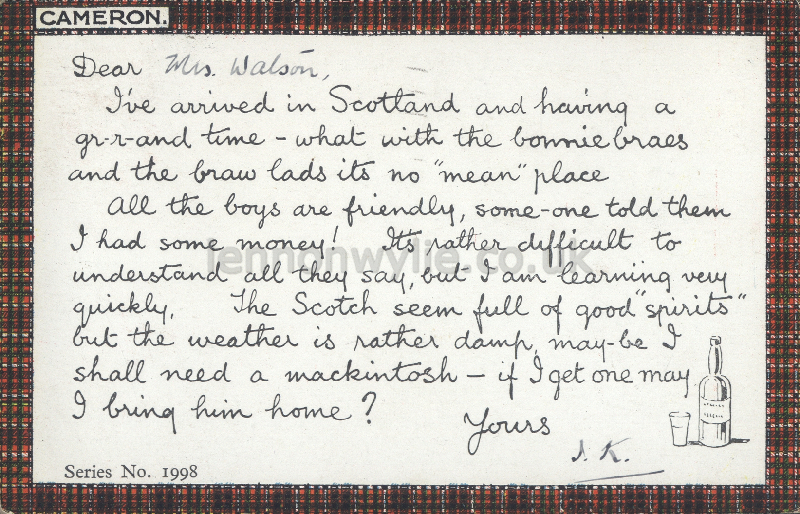 CAMERON.
Dear Mrs. Walson,
I've arrived in Scotland and having a
gr-r-and time - what with the bonnie braes
and the braw lads its no "mean" place
All the boys are friendly, some-one told them
I had some money! It's rather difficult to
understand all they say, but I am learning very
quickly. The Scotch seem full of good "spirits"
but the weather is rather damp, may-be I
shall need a mackintosh - if I get one may
I bring him home?
Yours
J. K.
Series No. 1998
lennonwylie.co.uk